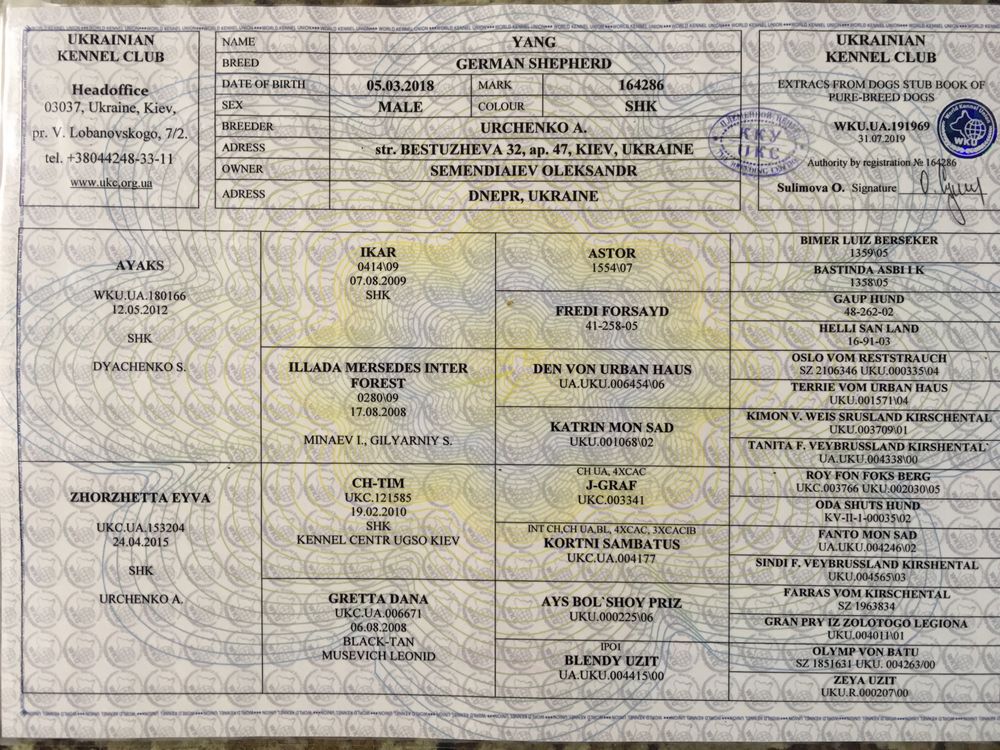 UKRAINIAN
KENNEL CLUB
Headoffice
03037, Ukraine, Kiev,
pr. V. Lobanovskogo, 7/2.
tel. +38044248-33-11
www.ukc.org.ua
NAME YANG
BREED GERMAN SHEPHERD
DATE OF BIRTH 05.03.2018 MARK 164286
SEX MALE COLOUR SHK
BREEDER URCHENKO A.
ADRESS str. BESTUZHEVA 32, ap. 47, KIEV, UKRAINE
OWNER SEMENDIAIEV OLEKSANDR
ADRESS DNEPR, UKRAINE
UKRAINIAN
KENNEL CLUB
EXTRACS FROM DOGS STUB BOOK OF
PURE-BREED DOGS
WKU.UA.191969
31.07.2019
Authority by registration № 164286
Sulimova O. Signature
World Kennel Union
WKU
ККУ
UKC
AYAKS
WKU.UA.180166
12.05.2012
SHK
DYACHENKO S.
ZHORZHETTA EYVA
UKC.UA.153204
24.04.2015
SHK
URCHENKO A.
IKAR
0414\09
07.08.2009
SHK
ILLADA MERSEDES INTER
FOREST
0280\09
17.08.2008
MINAEV I., GILYARNIY S.
CH-TIM
UKC.121585
19.02.2010
SHK
KENNEL CENTR UGSO KIEV
GRETTA DANA
UKC.UA.006671
06.08.2008
BLACK-TAN
MUSEVICH LEONID
ASTOR
1554\07
FREDI FORSAYD
41-258-05
DEN VON URBAN HAUS
UA.UKU.006454\06
KATRIN MON SAD
UKU.001068\02
CH UA, 4XCAC
J-GRAF
UKC.003341
INT CH,CH UA,BL, 4XCAC, 3XCACIB
KORTNI SAMBATUS
UKC.UA.004177
AYS BOL`SHOY PRIZ
UKU.000225\06
IPO1
BLENDY UZIT
UA.UKU.004415\00
BIMER LUIZ BERSEKER
1359\05
BASTINDA ASBI I K
1358\05
GAUP HUND
48-262-02
HELLI SAN LAND
16-91-03
OSLO VOM RESTSTRAUCH
SZ 2106346 UKU.000335\04
TERRIE VOM URBAN HAUS
UKU.001571\04
KIMON V. WEIS SRUSLAND KIRSCHENTAL
UKU.003709\01
TANITA F. VEYBRUSSLAND KIRSHENTAL`
UA.UKU.004338\00
ROY FON FOKS BERG
UKC.003766 UKU.002030\05
ODA SHUTS HUND
KV-II-1-00035\02
FANTO MON SAD
UA.UKU.004246\02
SINDI F. VEYBRUSSLAND KIRSHENTAL
UKU.004565\03
FARRAS VOM KIRSCHENTAL
SZ 1963834
GRAN PRY IZ ZOLOTOGO LEGIONA
UKU.004011\01
OLYMP VON BATU
SZ 1851631 UKU. 004263/00
ZEYA UZIT
UKU.R.000207\00